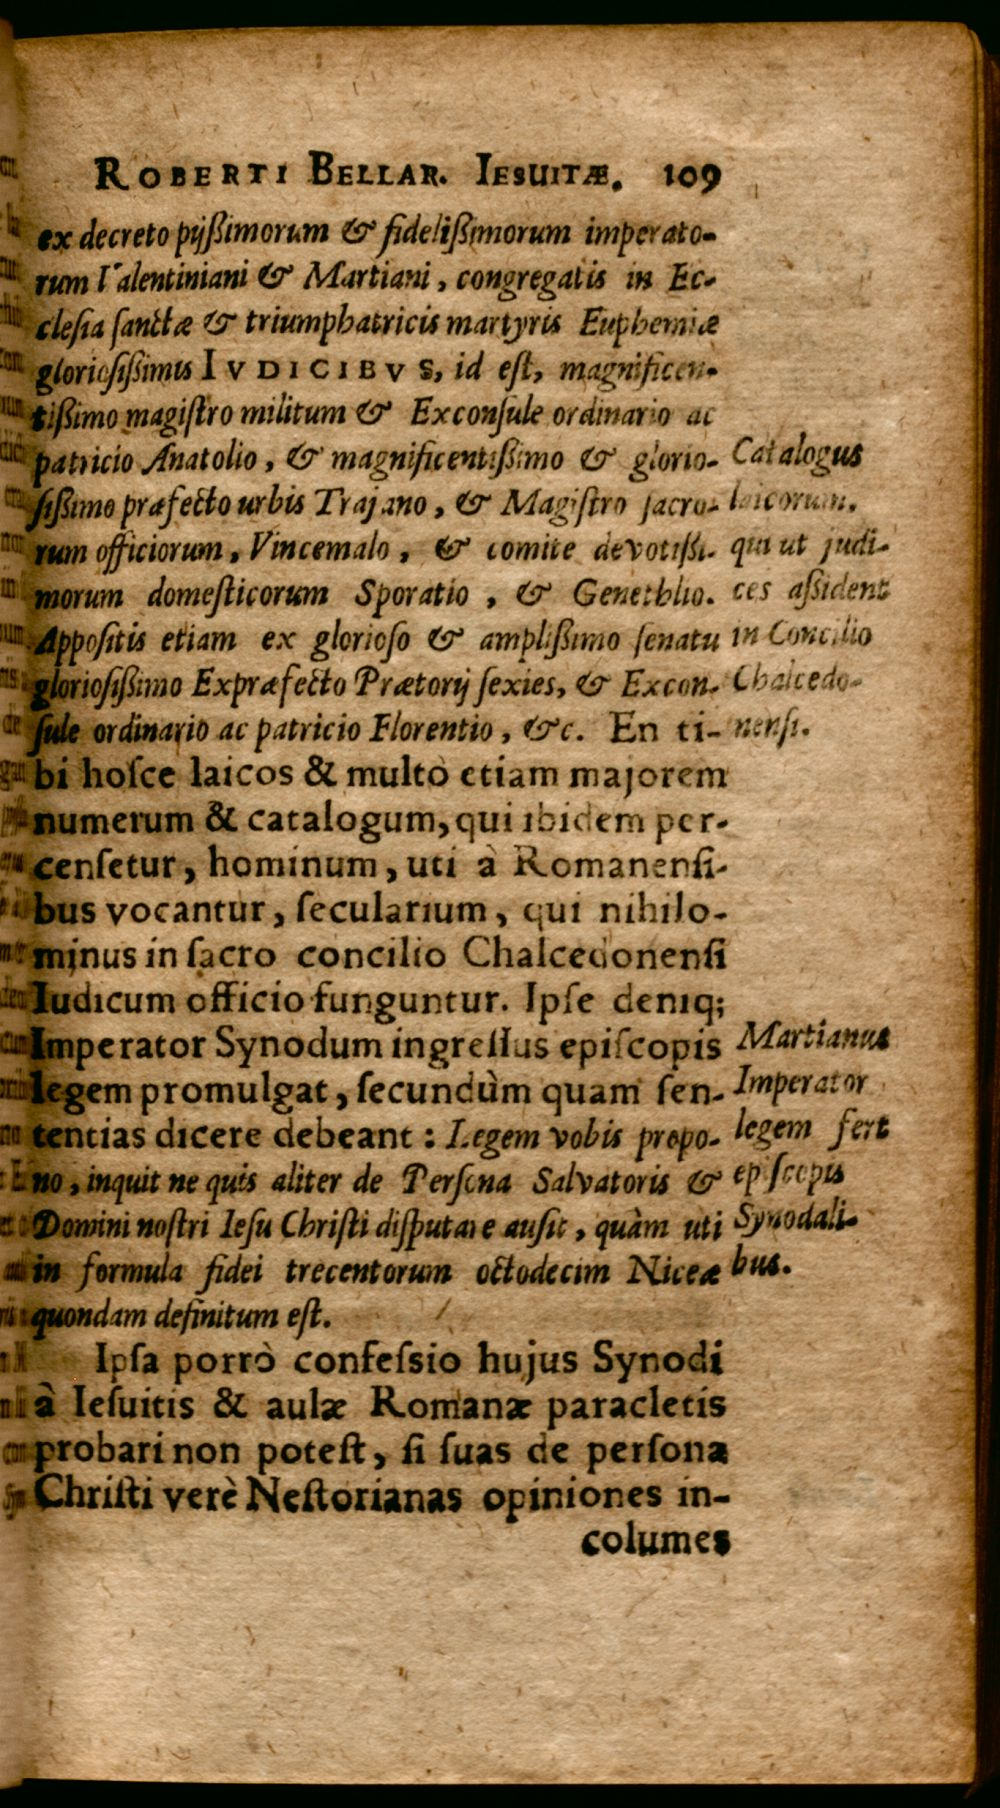 ROBERTI BELLAR. IESUITÆ. 109
ex decreto pijßimorum & fidelißimorum imperato-
rum Valentiniani & Martiani, congregatis in Ec-
clesia sanctæ & triumphatricis martyris Euphemiæ
gloriosißimis IVDICIBVS, id est, magnificen-
tißimo magistro militum & Exconsule ordinario ac
patricio Anatolio, & magnificentißimo & glorio-
sißimo præfecto urbis Trajano, & Magistro sacro-
rum officiorum, Vincemalo, & comite devotißi-
morum domesticorum Sporatio, & Genethlio.
Appositis etiam ex glorioso & amplißimo senatu
gloriosißimo Expræfecto Prætorij sexies, & Excon-
sule ordinario ac patricio Florentio, &c. En ti-
bi hosce laicos & multò etiam majorem
numerum & catalogum, qui ibidem per-
censetur, hominum, uti à Romanensi-
bus vocantur, secularium, qui nihilo-
minus in sacro concilio Chalcedonensi
Iudicum officio funguntur. Ipse deniq;
Imperator Synodum ingressus episcopis
legem promulgat, secundùm quam sen-
tentias dicere debeant: Legem vobis propo-
no, inquit ne quis aliter de Persona Salvatoris &
Domini nostri Iesu Christi disputare ausit, quàm uti
in formula fidei trecentorum octodecim Niceæ
quondam definitum est.
Ipsa porrò confessio hujus Synodi
à Iesuitis & aulæ Romanæ paracletis
probari non potest, si suas de persona
Christi verè Nestorianas opiniones in-
columes
Catalogus
laicorum,
qui ut judi-
ces aßident
in Concilio
Chalcedo-
nensi.
Martianus
Imperator
legem fert
episcopis
Synodali-
bus.